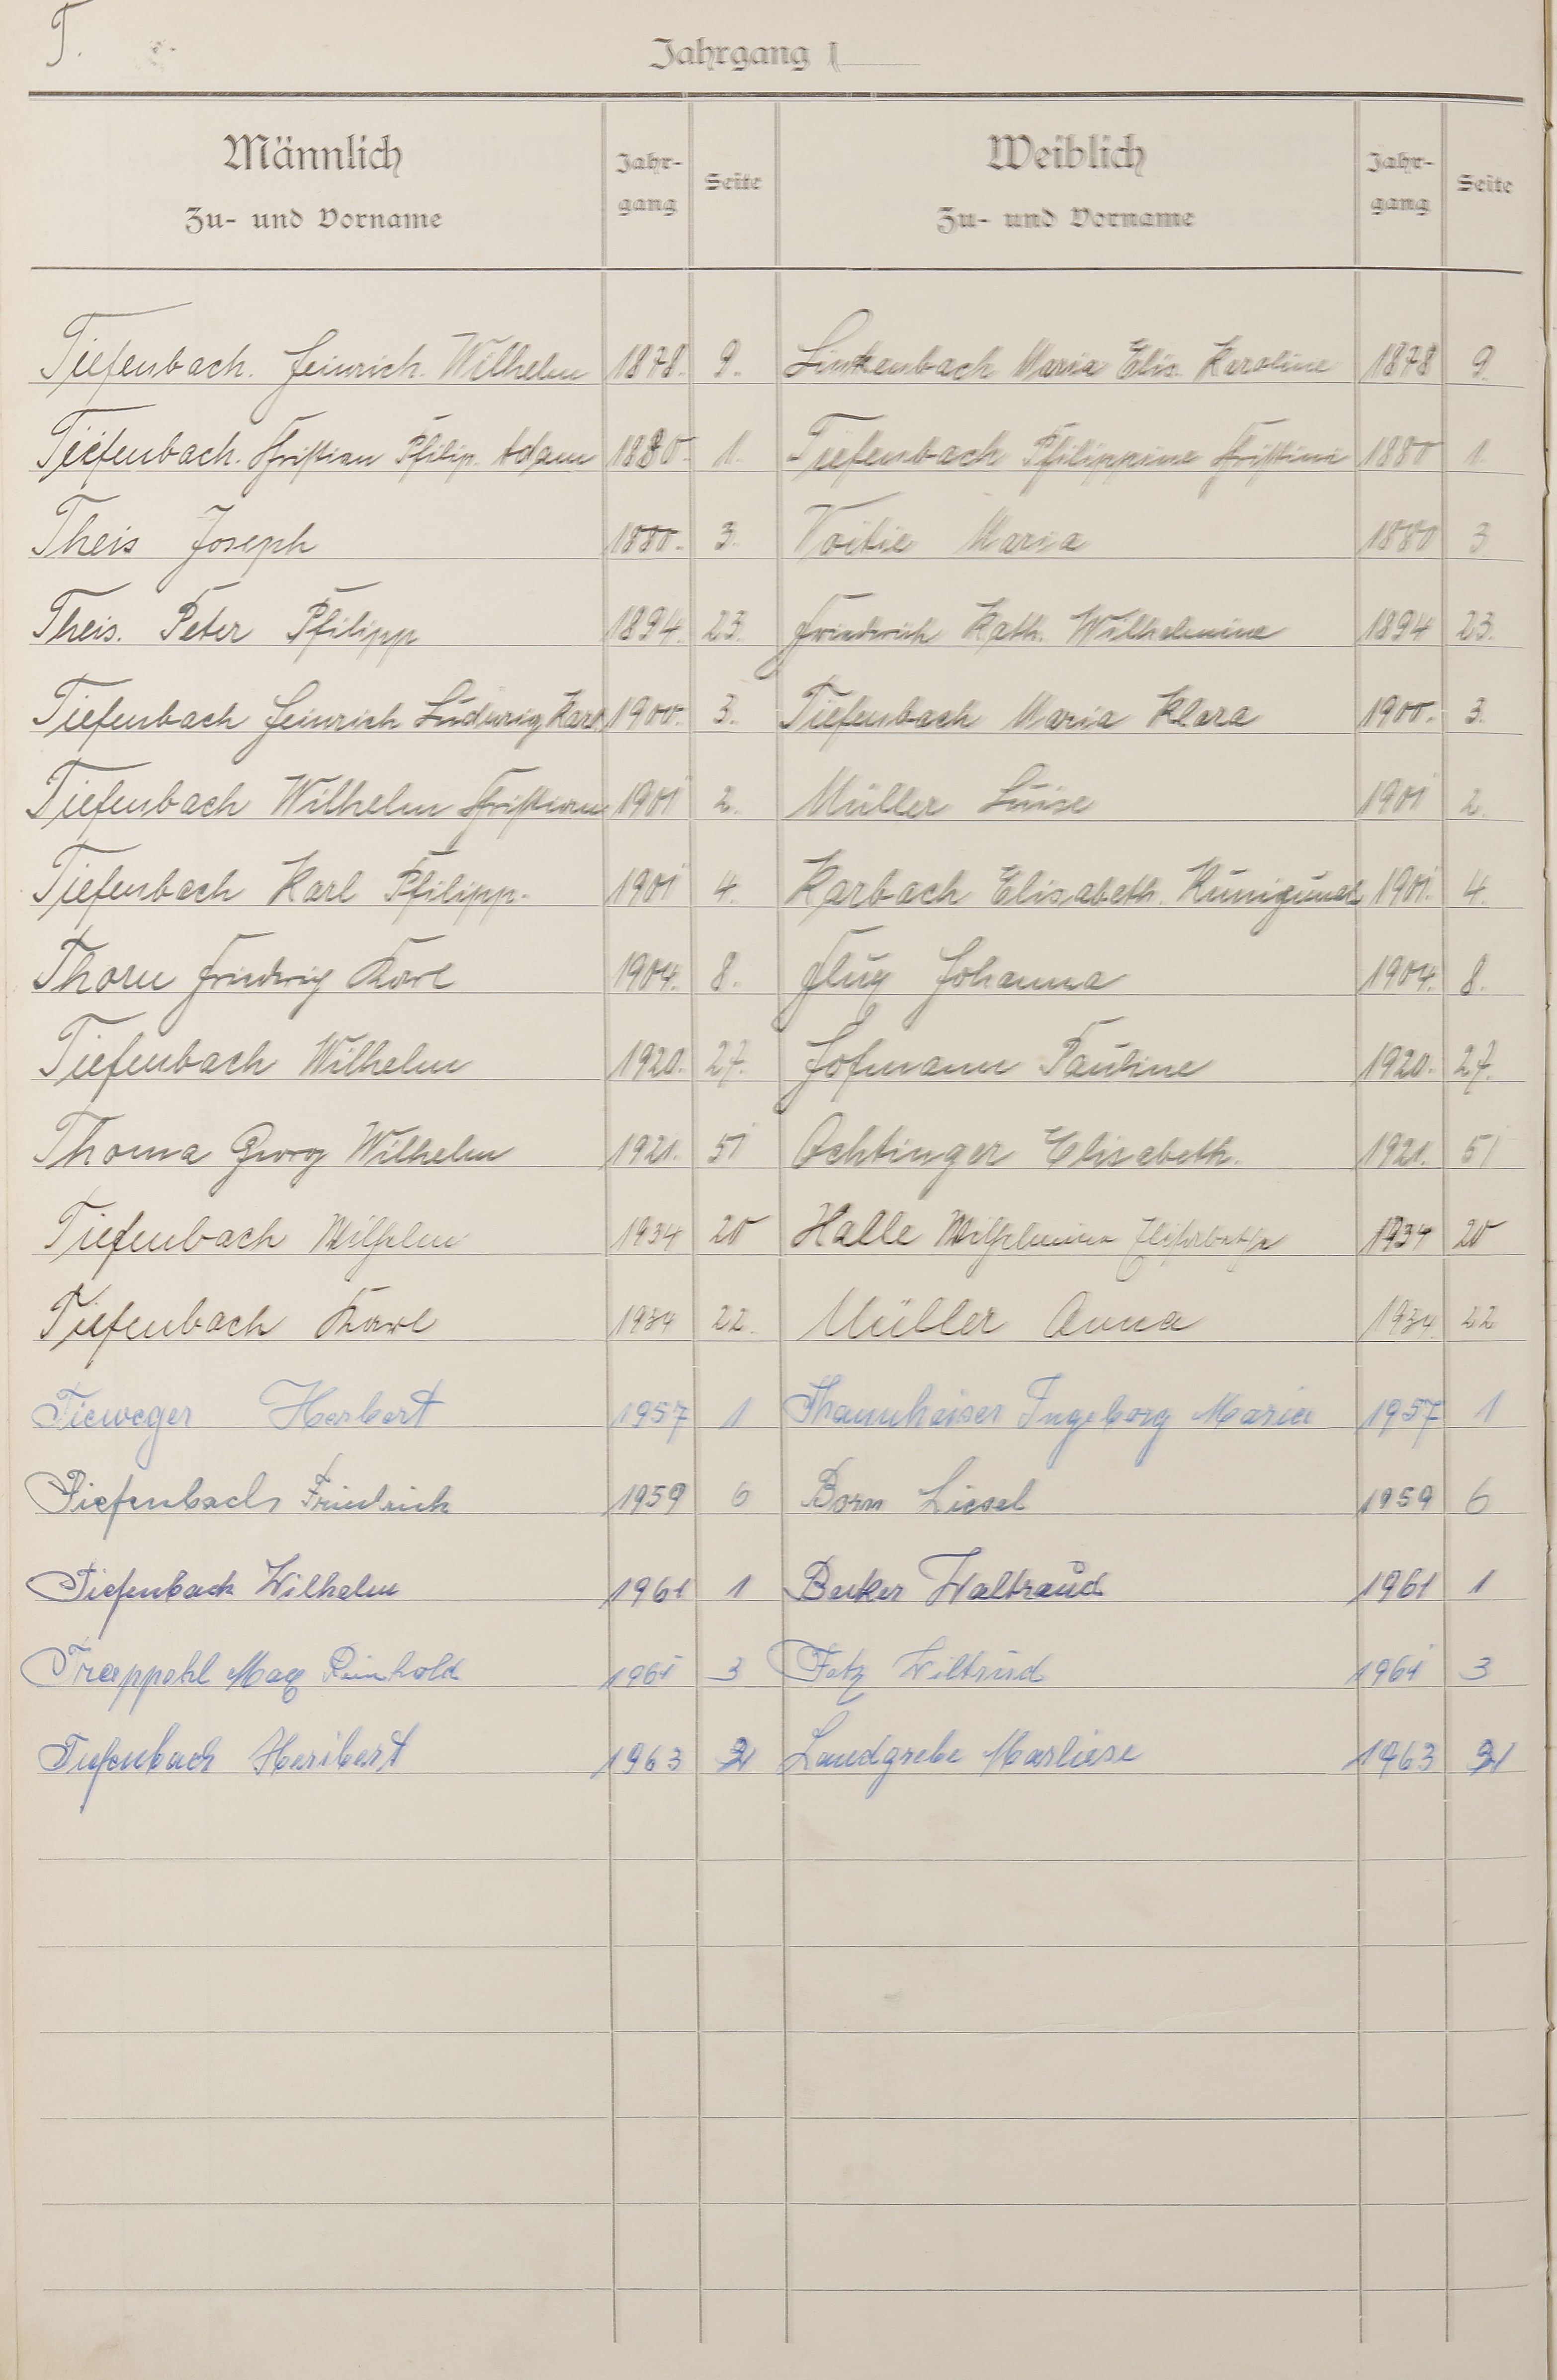 T.
Jahrgang 1
Männlich Zu- und Vorname Jahr-gang Seite Weiblich Zu- und Vorname Jahr-gang Seite
Tiefenbach. Heinrich. Wilhelm 1878. 9. Linkenbach Maria Elis. Karoline 1878 9.
Tiefenbach. Christian Philip. Adam 1880. 1. Tiefenbach Philippine Christine 1880 1.
Theis Joseph 1880. 3. Maria 1880 3
Theis. Peter Philipp 1894. 23. Friedrich Kath. Wilhelmine 1894 23.
Tiefenbach Heinrich Ludwig Karl 1900. 3. Tiefenbach Maria Klara 1900. 3.
Tiefenbach Wilhelm Christian 1901 2. Müller Luise 1901 2.
Tiefenbach Karl Philipp. 1901 4. Karbach Elisabeth. Kunigunde 1901. 4.
Thorn Friedrich Karl 1904. 8. Flug Johanna 1904. 8.
Tiefenbach Wilhelm 1920. 27. Hofmann Pauline 1920. 27.
Thoma Georg Wilhelm 1921. 51 Ochtinger Elisabeth. 1921. 51
Tiefenbach Wilhelm 1934 20 Halle Wilhelmine Elisabetha 1934 20
Tiefenbach Karl 1934 22. Müller Anna 1934. 22
Tieweger Herbert 1957 1 Thannhäiser Ingeborg Maria 1957 1
Tiefenbach Friedrich 1959 6 Born Liesel 1959 6
Tiefenbach Wilhelm 1961 1 Becker Waltraud 1961 1
Reinhold 1961 3 Fetz Wiltrud 1961 3
Tiefenbach Heribert 1963 Landgrebe Marliese 1963